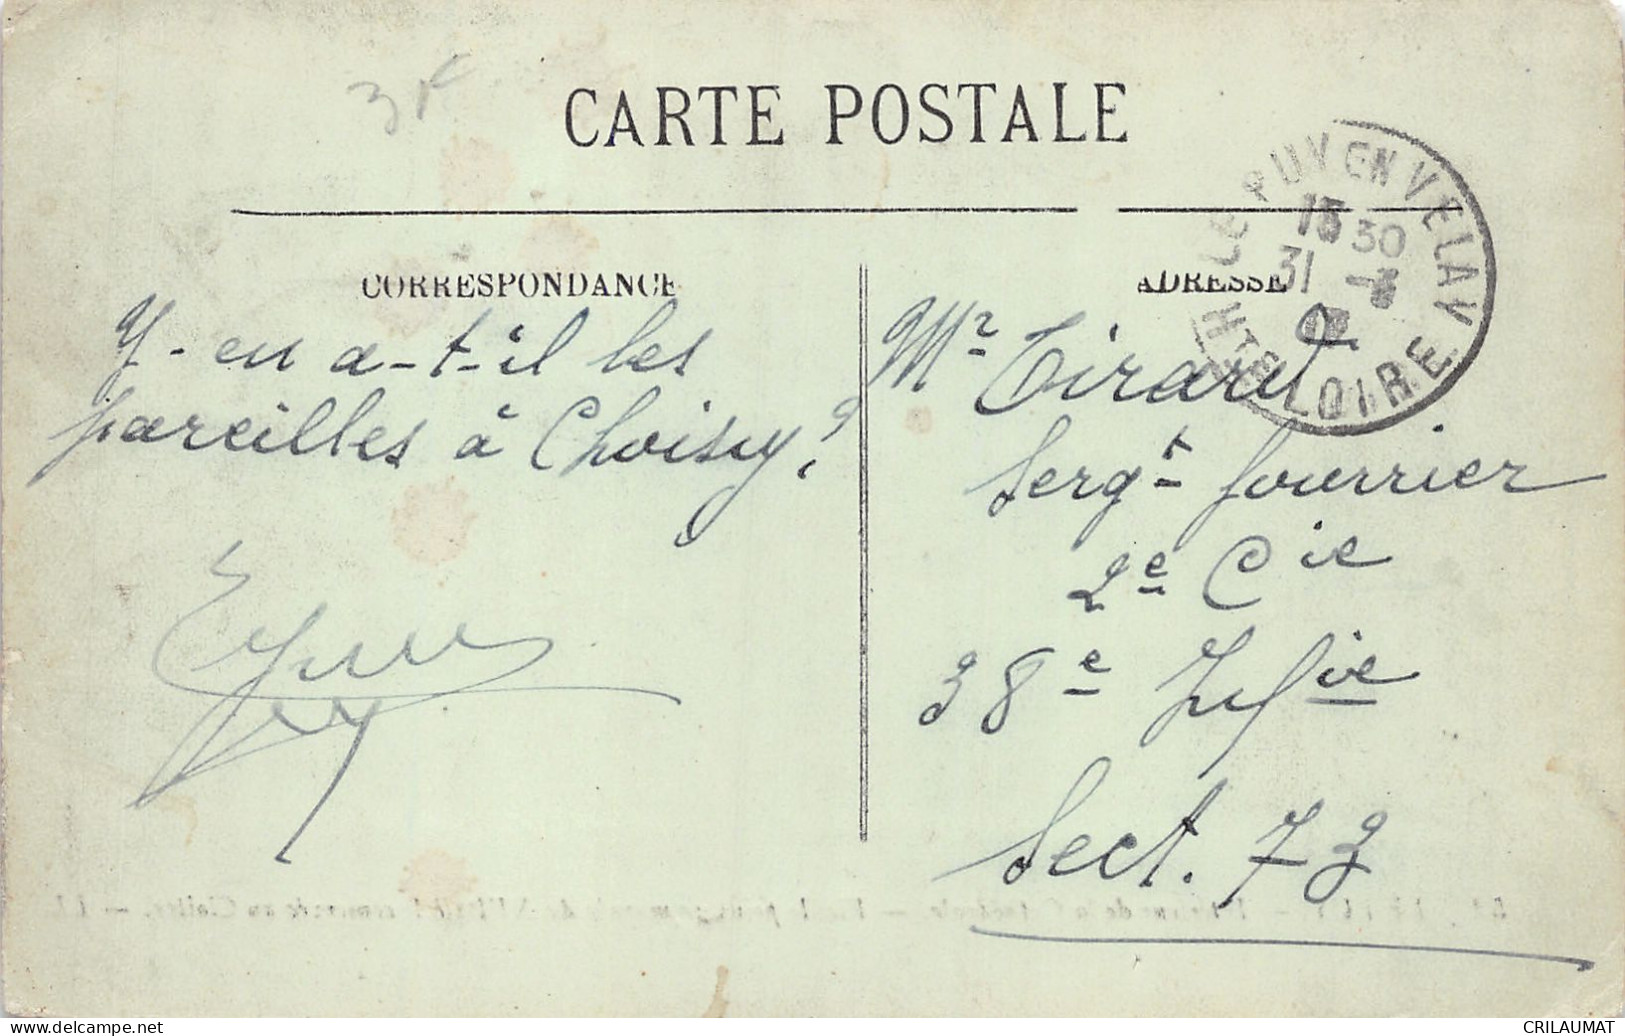 3f
CARTE POSTALE
LE PUY EN VELAY
HTE LOIRE
15 30
31
CORRESPONDANCE
ADRESSE
Y-en a-t-il les
pareilles à Choisy?
Mr Tirard
Sergt fourrier
2e Cie
38e Infie
Sect. 73
CRILAUMAT
www.delcampe.net